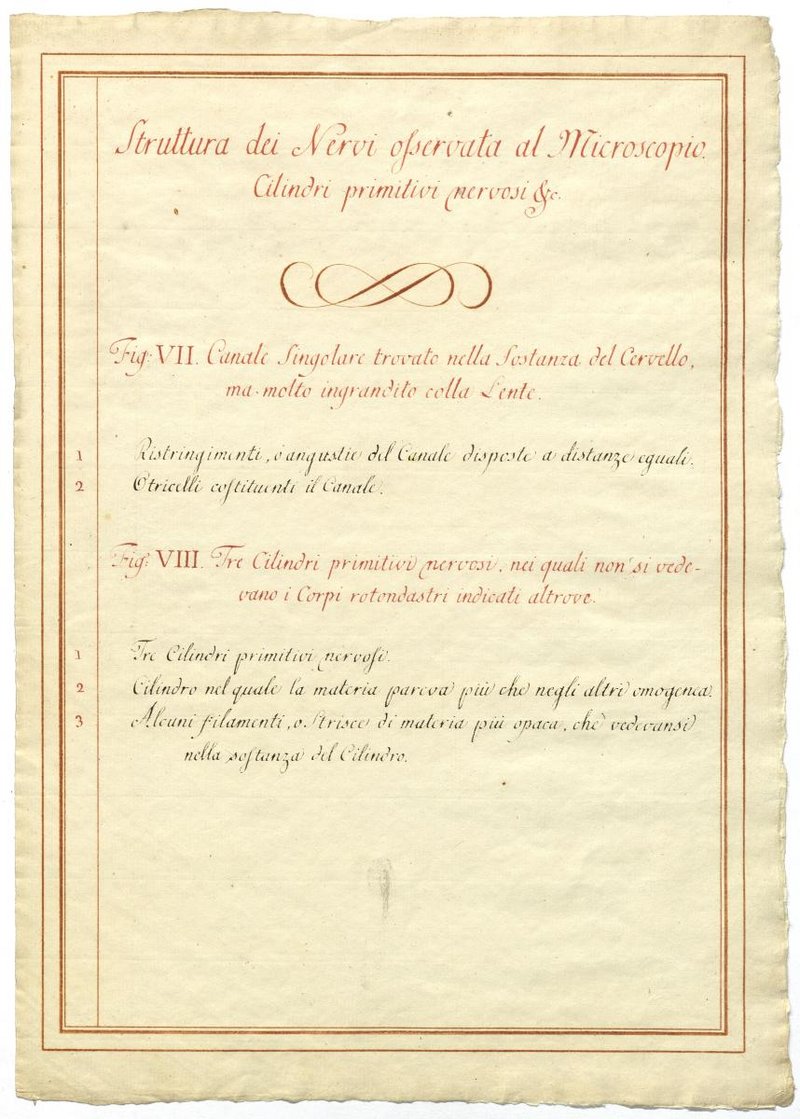 Struttura dei Nervi oſservata al Microscopio.
Cilindri primitivi nervosi &c.
Fig: VII. Canale Singolare trovato nella Sostanza del Cervello,
ma molto ingrandito colla Lente.
1 Ristringimenti, o angustie del Canale disposte a distanze eguali.
2 Otricelli coſtituenti il Canale.
Fig: VIII. Tre Cilindri primitivi nervosi, nei quali non si vede-
vano i Corpi rotondastri indicati altrove.
1 Tre Cilindri primitivi nervoſi.
2 Cilindro nel quale la materia pareva più che negli altri omogenea.
3 Alcuni filamenti, o Strisce di materia più opaca, che vedevansi
nella soſtanza del Cilindro.